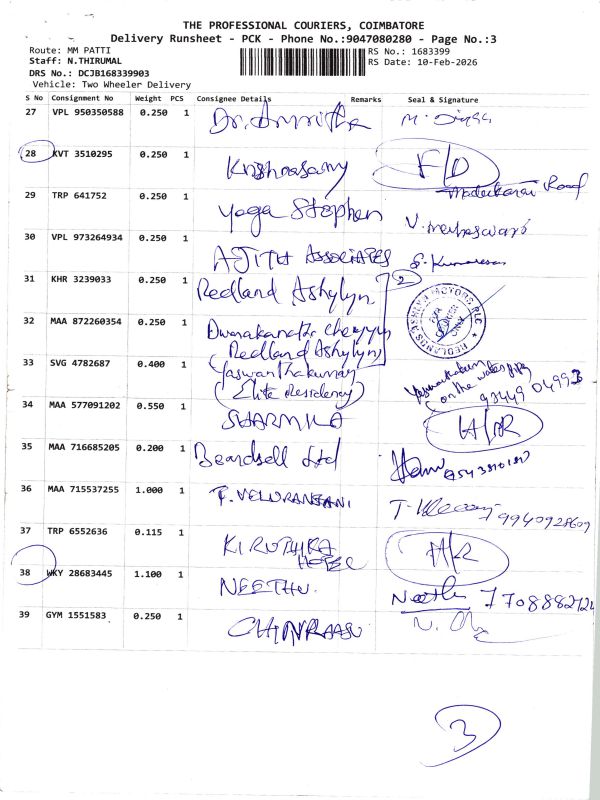 THE PROFESSIONAL COURIERS, COIMBATORE
Delivery Runsheet - PCK - Phone No.:9047080280 - Page No.:3
Route: MM PATTI
RS No.: 1683399
Staff: N.THIRUMAL
RS Date: 10-Feb-2026
DRS No.: DCJB168339903
Vehicle: Two Wheeler Delivery
S No Consignment No Weight PCS Consignee Details Remarks Seal & Signature
27 VPL 950350588 0.250 1 Dr. Amritha M.
28 KVT 3510295 0.250 1 Krishnasamy F/D
Road
29 TRP 641752 0.250 1 Yoga Stephen
30 VPL 973264934 0.250 1 AJITH ASSOCIATES S. Kumaresan
31 KHR 3239033 0.250 1 Redland Ashylyn 2
32 MAA 872260354 0.250 1 Dwarakanath
(Redland Ashylyn)
33 SVG 4782687 0.400 1 Yaswanthakumar
(Elite Residency)
93449 04993
34 MAA 577091202 0.550 1 SHARMILA
35 MAA 716685205 0.200 1 Beardsell Ltd
36 MAA 715537255 1.000 1 T. VELURANJANI
9940928609
37 TRP 6552636 0.115 1 KIRUTHIKA
HOTEL
38 WKY 28683445 1.100 1 NEETHU. Neethu
39 GYM 1551583 0.250 1 CHINRAASU N.
3